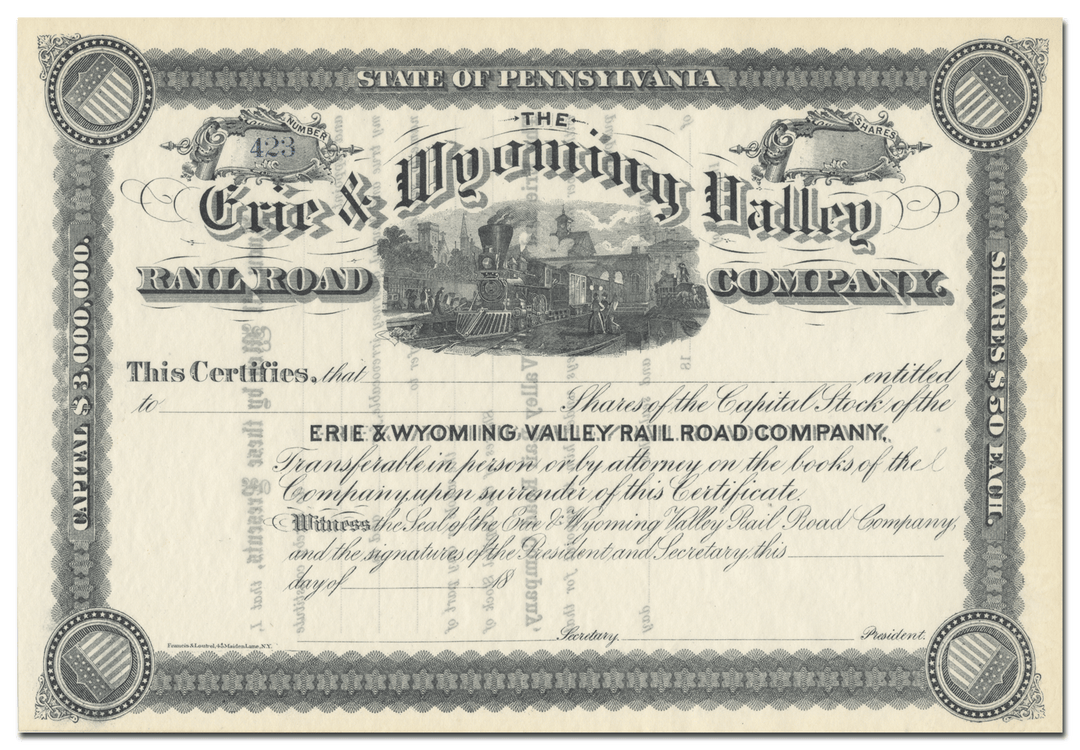 STATE OF PENNSYLVANIA
NUMBER
423
SHARES
THE
Erie & Wyoming Valley
RAIL ROAD COMPANY.
CAPITAL $3,000,000.
SHARES $50 EACH.
This Certifies, that entitled
to Shares of the Capital Stock of the
ERIE & WYOMING VALLEY RAIL ROAD COMPANY,
Transferable in person or by attorney on the books of the
Company, upon surrender of this Certificate.
Witness the Seal of the Erie & Wyoming Valley Rail Road Company,
and the signatures of the President and Secretary, this
day of 18
Secretary. President.